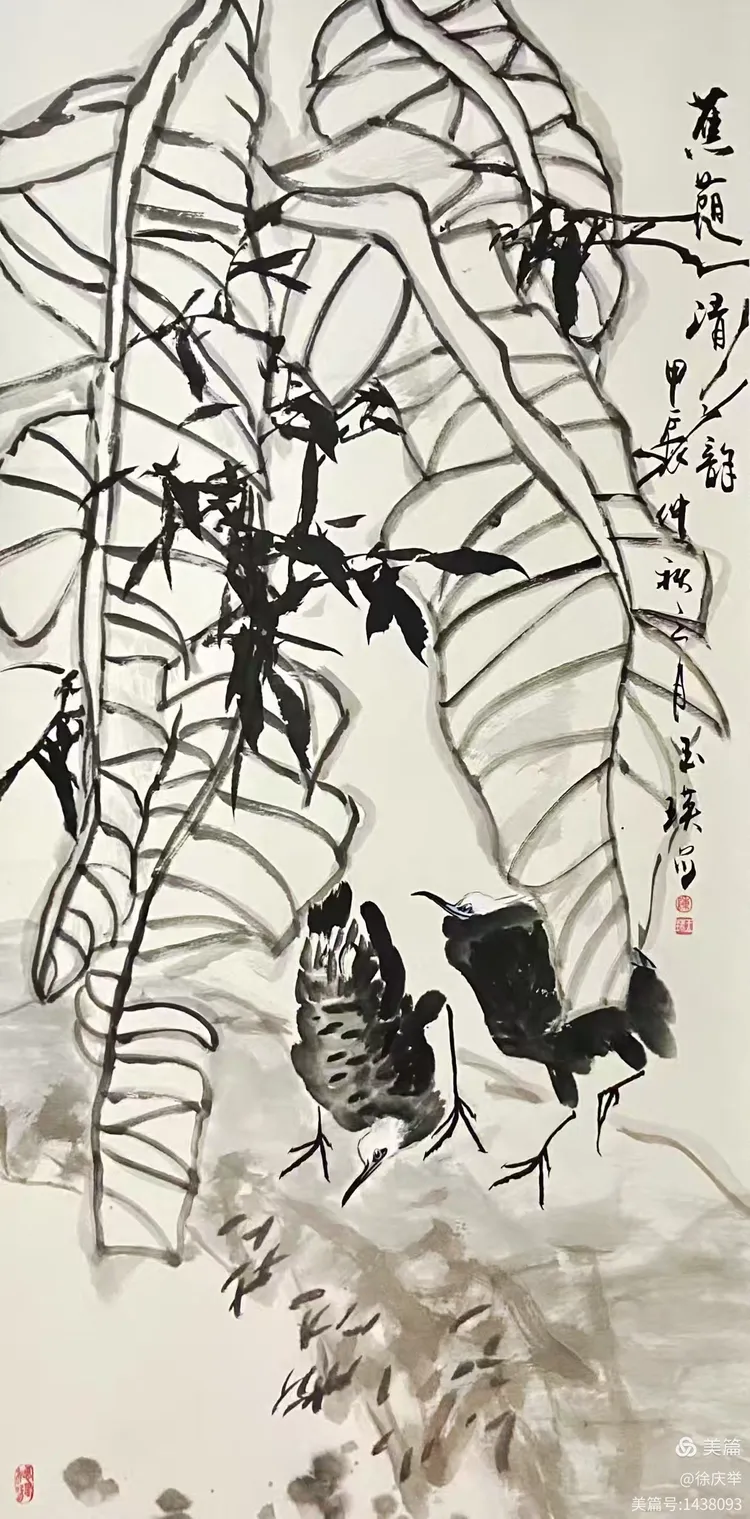 蕉荫清韵
甲辰仲秋之月玉瑛写
美篇
@徐庆举
美篇号:1438093